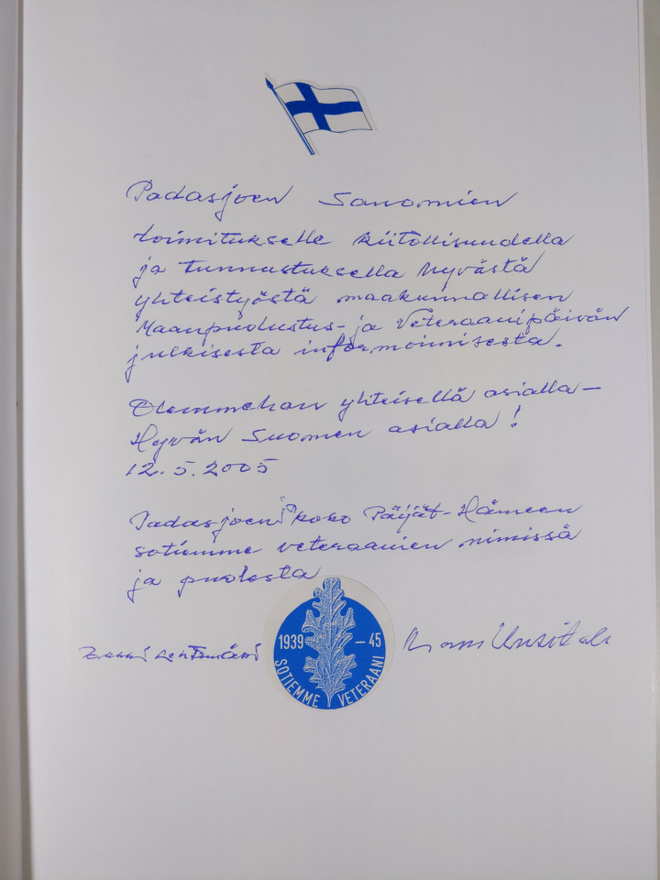 Padasjoen Sanomien
toimitukselle kiitollisuudella
ja tunnustuksella hyvästä
yhteistyöstä maakunnallisen
Maanpuolustus- ja Veteraanipäivän
julkisesta informoinnista.
Olemmehan yhteisellä asialla –
Hyvän Suomen asialla!
12.5.2005
Padasjoen koko Päijät-Hämeen
sotiemme veteraanien nimissä
ja puolesta
1939 – 45
SOTIEMME VETERAANI